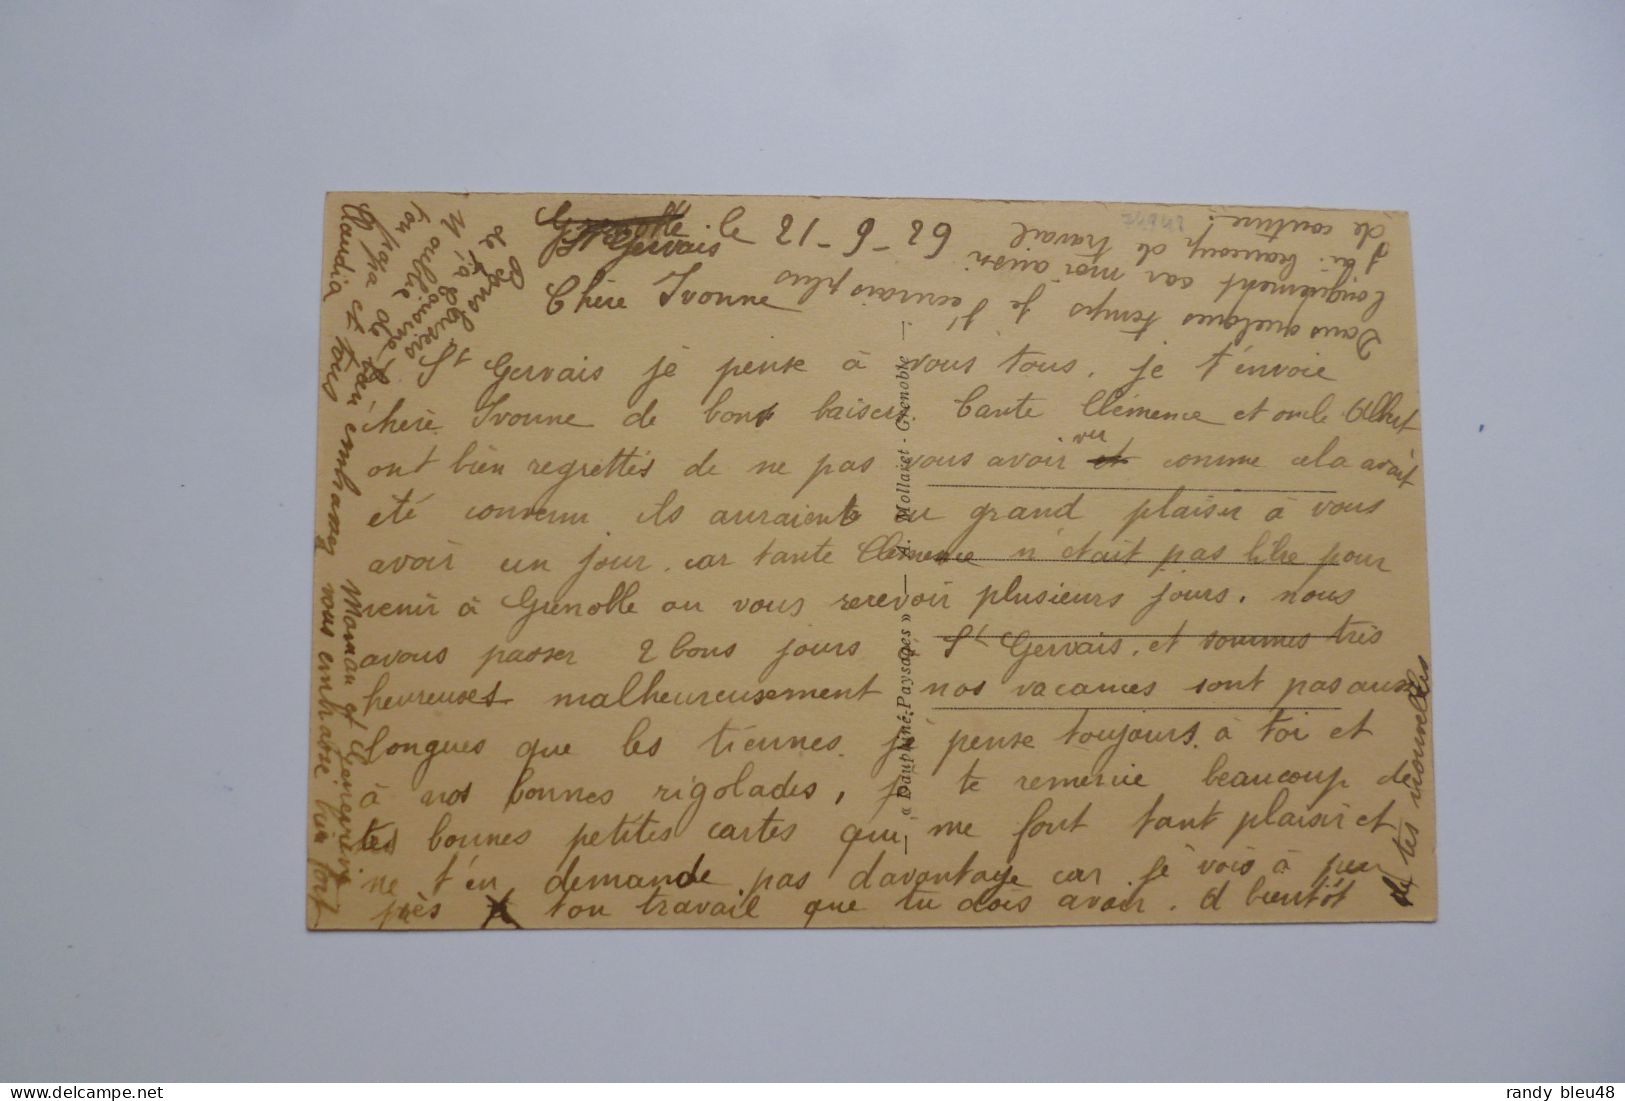 St Gervais le 21-9-29
Chère Ivonne
St Gervais je pense à vous tous. je t'envoie
chère Ivonne de bons baisers. tante Clémence et oncle Albert
ont bien regrettés de ne pas vous avoir vu comme cela avait
eté convenu ils auraient eu grand plaisir à vous
avoir un jour. car tante Clémence n'était pas libre pour
venir à Grenoble ou vous recevoir plusieurs jours. nous
avous passer 2 bons jours St Gervais. et sommes très
heureuses malheureusement nos vacances sont pas aussi
longues que les tiennes. je pense toujours à toi et
à nos bonnes rigolades, je te remercie beaucoup de
tes bonnes petites cartes qui me font tant plaisir et
ne t'en demande pas davantage car je vois à peu
près ton travail que tu dois avoir. A bientôt
de tes nouvelles
Dans quelques temps je t'ecrirais plus
longuement car moi aussi
j'ai beaucoup de travail
de couture!
Bons baisers
de ta
cousine
Maman et Geneviève
Claudia et tous vous embrasse bien fort
« Dauphiné-Paysages » — A. Mollaret - Grenoble —
randy bleu48